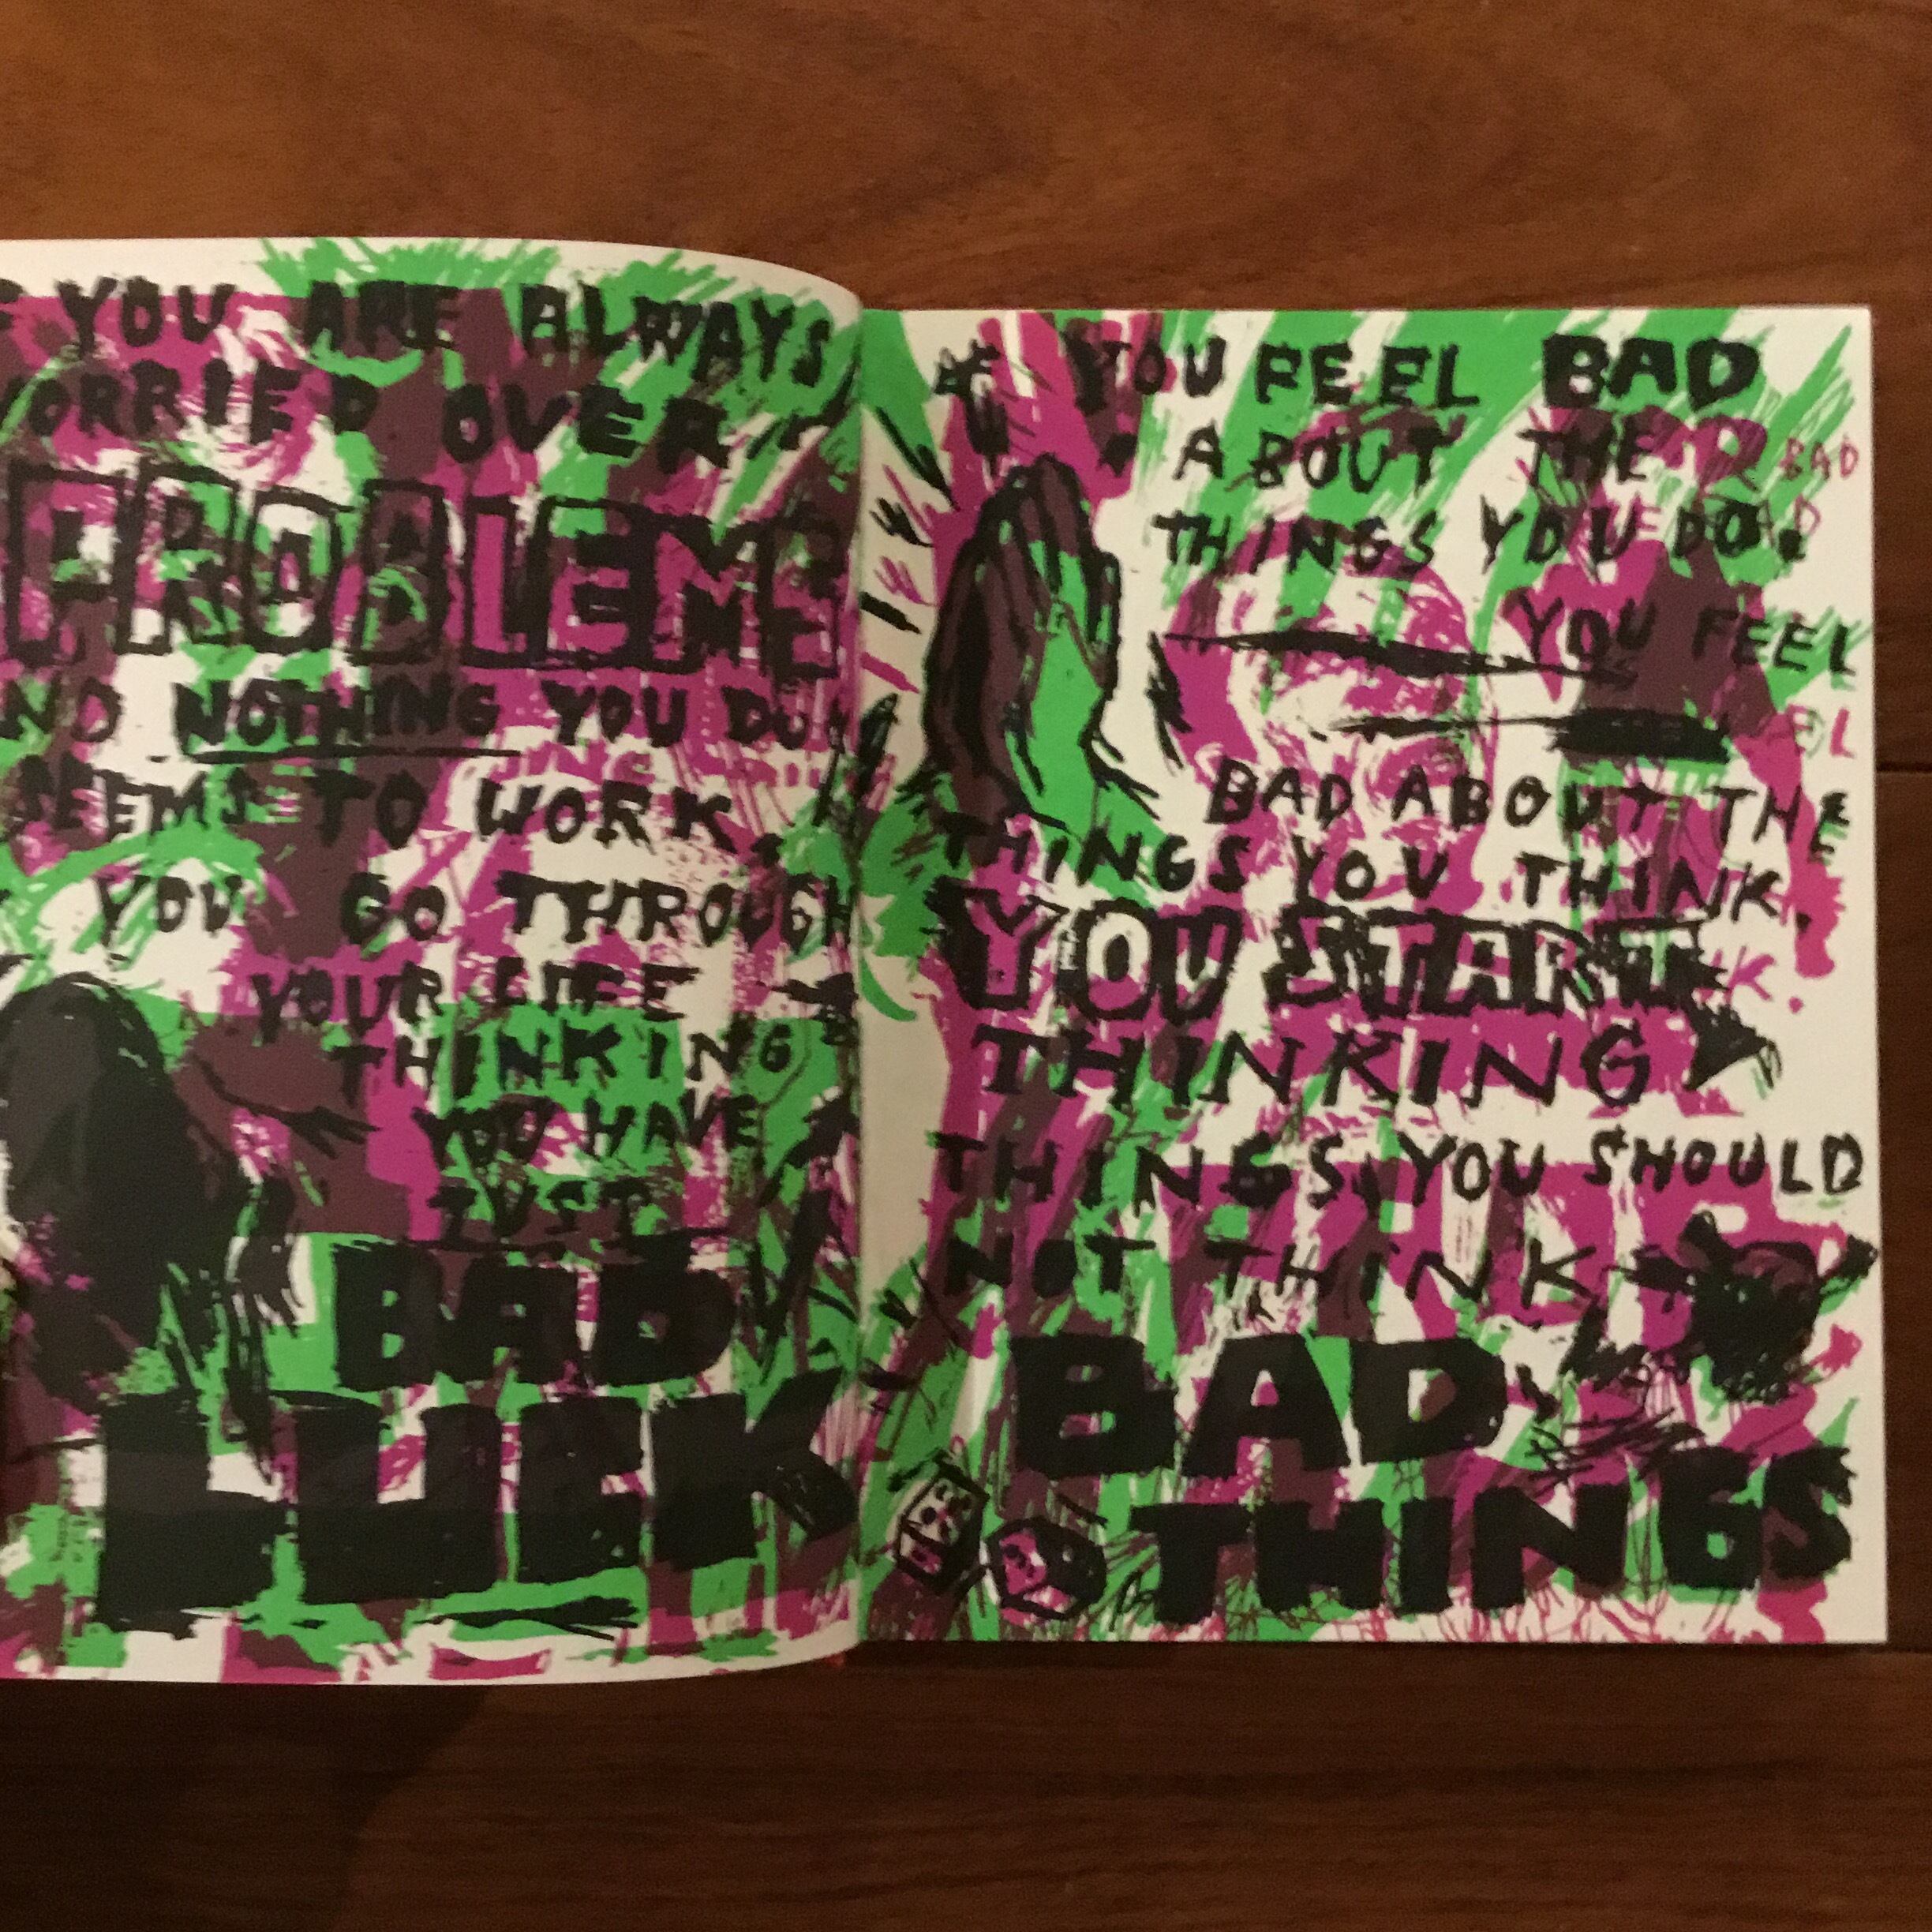 YOU ARE ALWAYS
WORRIED OVER
PROBLEMS
AND NOTHING YOU DO
SEEMS TO WORK.
YOU GO THROUGH
YOUR LIFE
THINKING
YOU HAVE
JUST
BAD
LUCK
YOU FEEL BAD
ABOUT THE
THINGS YOU DO.
YOU FEEL
BAD ABOUT THE
THINGS YOU THINK.
YOU START
THINKING
THINGS YOU SHOULD
NOT THINK
BAD
THINGS